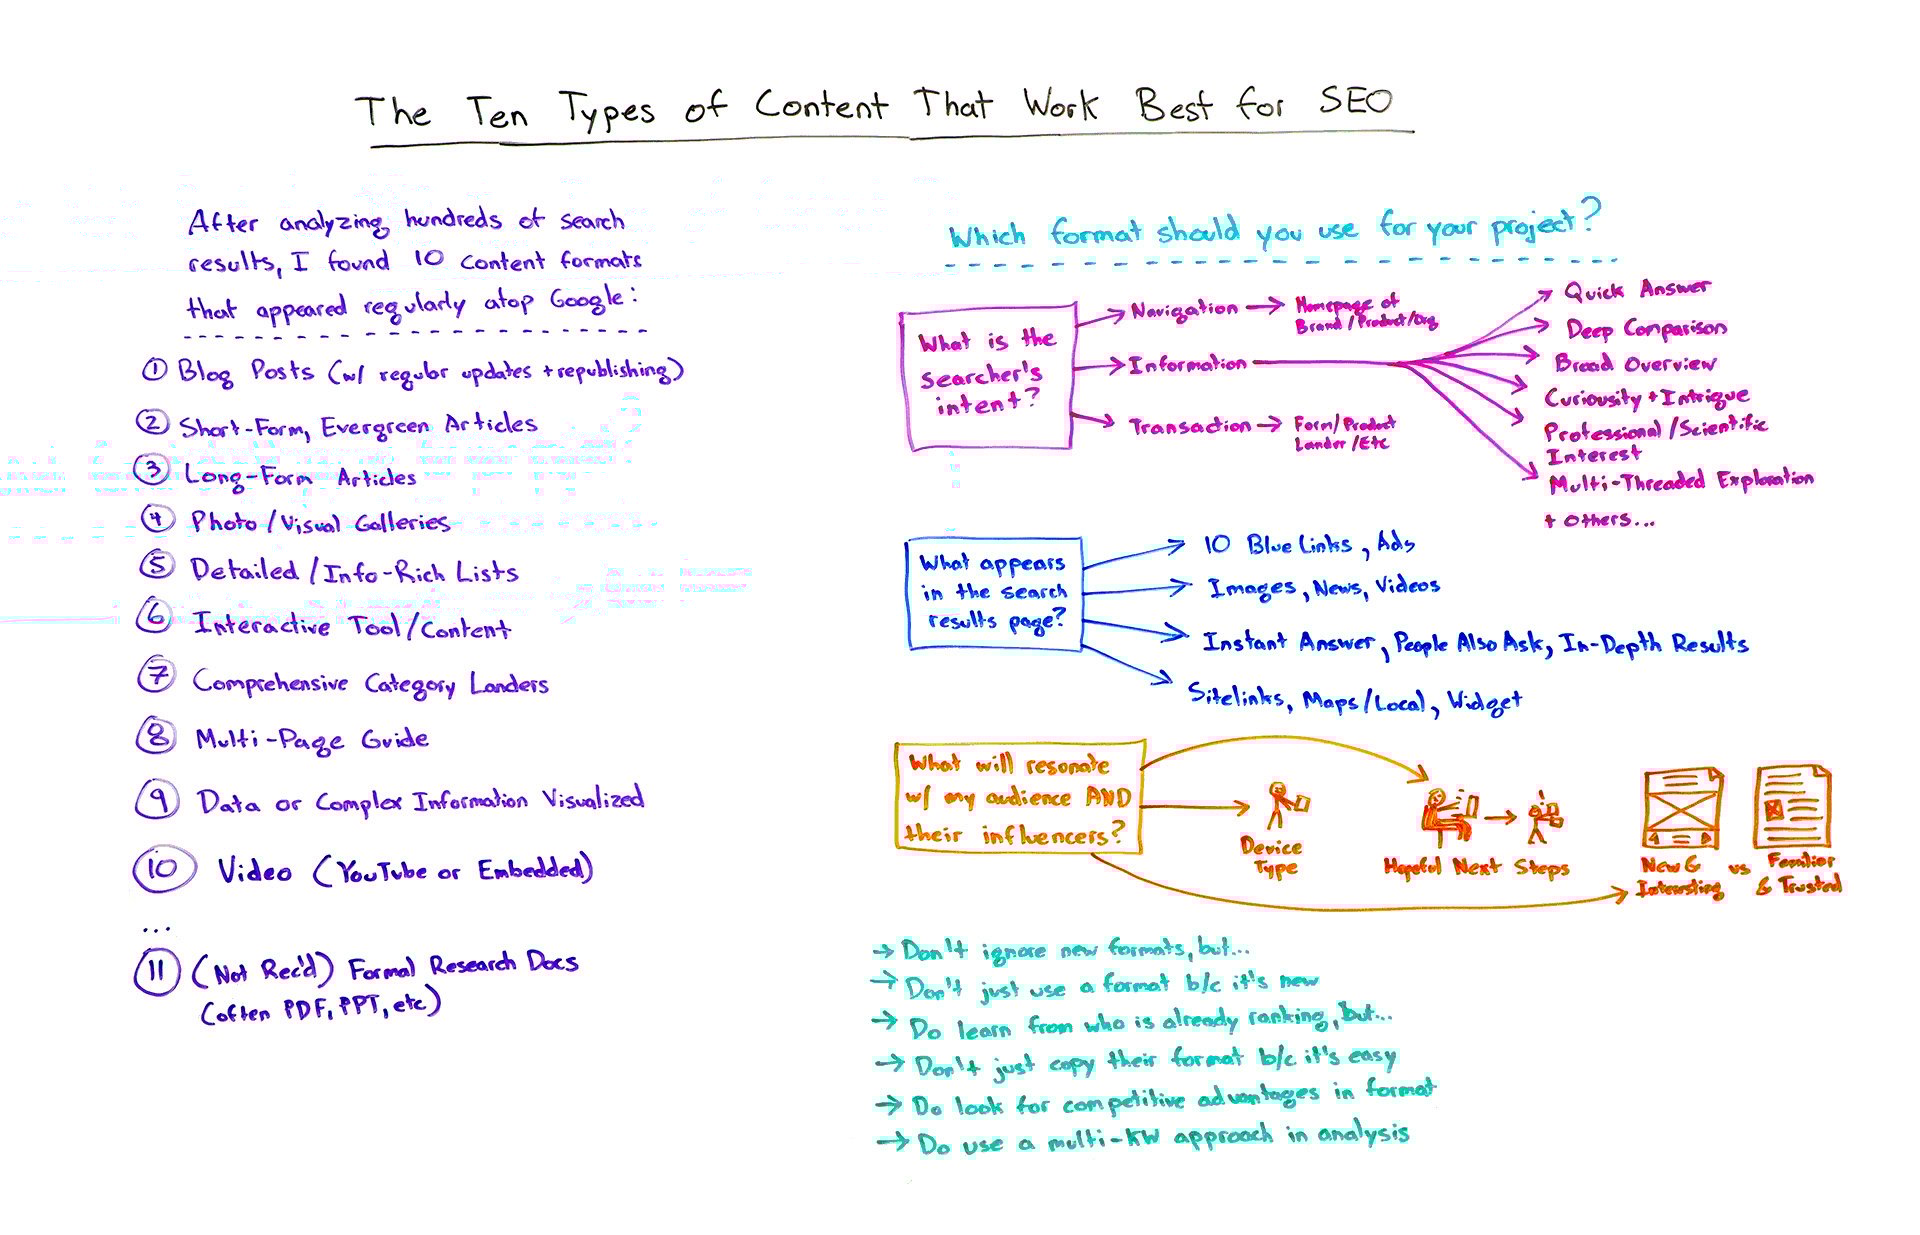 The Ten Types of Content That Work Best for SEO
After analyzing hundreds of search
results, I found 10 content formats
that appeared regularly atop Google:
① Blog Posts (w/ regular updates + republishing)
② Short-Form, Evergreen Articles
③ Long-Form Articles
④ Photo/Visual Galleries
⑤ Detailed/Info-Rich Lists
⑥ Interactive Tool/Content
⑦ Comprehensive Category Landers
⑧ Multi-Page Guide
⑨ Data or Complex Information Visualized
⑩ Video (YouTube or Embedded)
...
⑪ (Not Rec'd) Formal Research Docs
(often PDF, PPT, etc)
Which format should you use for your project?
What is the
searcher's
intent?
Navigation → Homepage of
Brand/Product/Org
Information
Transaction → Form/Product
Lander/Etc
Quick Answer
Deep Comparison
Broad Overview
Curiousity + Intrigue
Professional/Scientific
Interest
Multi-Threaded Exploration
+ others...
What appears
in the search
results page?
10 Blue Links, Ads
Images, News, Videos
Instant Answer, People Also Ask, In-Depth Results
Sitelinks, Maps/Local, Widget
What will resonate
w/ my audience AND
their influencers?
Device
Type
Hopeful Next Steps
New &
Interesting
vs
Familiar
& Trusted
→ Don't ignore new formats, but...
→ Don't just use a format b/c it's new
→ Do learn from who is already ranking, but...
→ Don't just copy their format b/c it's easy
→ Do look for competitive advantages in format
→ Do use a multi-KW approach in analysis